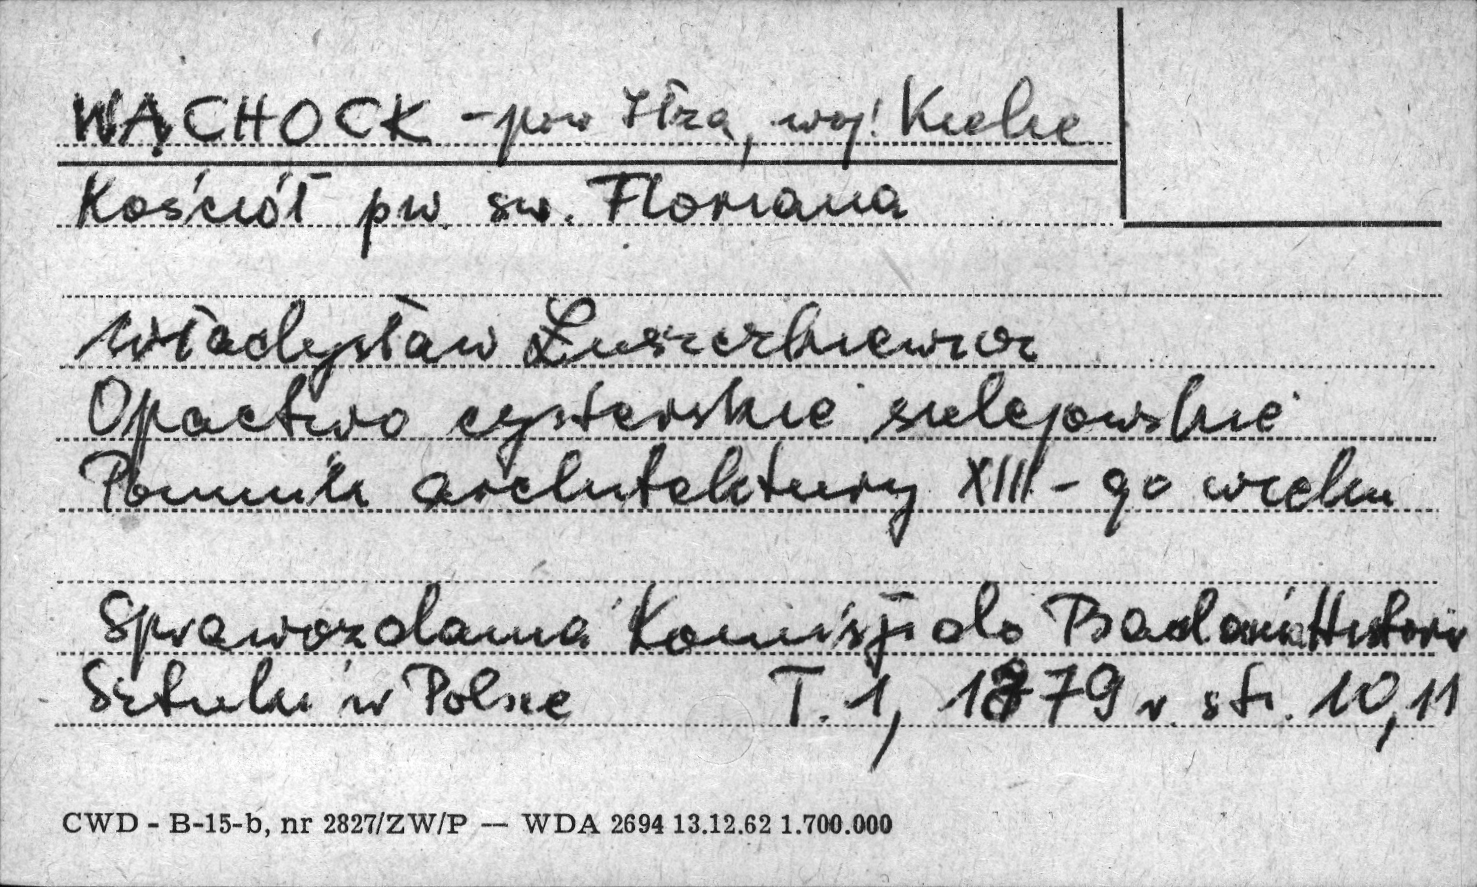 WĄCHOCK - pow Iłża, woj. Kielce
Kościół pw. św. Floriana
Władysław Łuszczkiewicz
Opactwo cysterskie sulejowskie
Pomnik architektury XIII-go wieku
Sprawozdania Komisji do Badania Historii
Sztuki w Polsce T. 1, 1879 r. str. 10, 11
CWD - B-15-b, nr 2827/ZW/P — WDA 2694 13.12.62 1.700.000